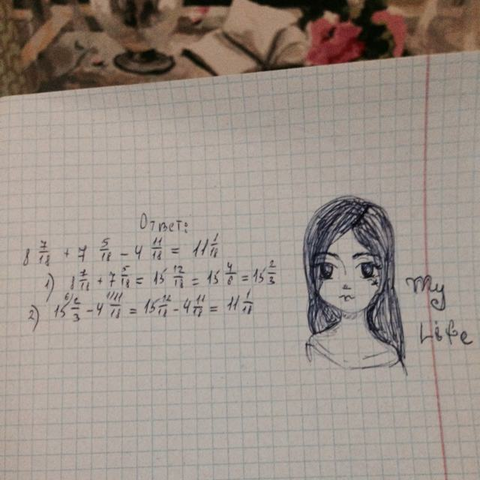 Ответ:
8 7/18 + 7 5/18 - 4 11/18 = 11 1/18
1) 8 7/18 + 7 5/18 = 15 12/18 = 15 4/6 = 15 2/3
2) 15 2/3 - 4 11/18 = 15 12/18 - 4 11/18 = 11 1/18
My
Life